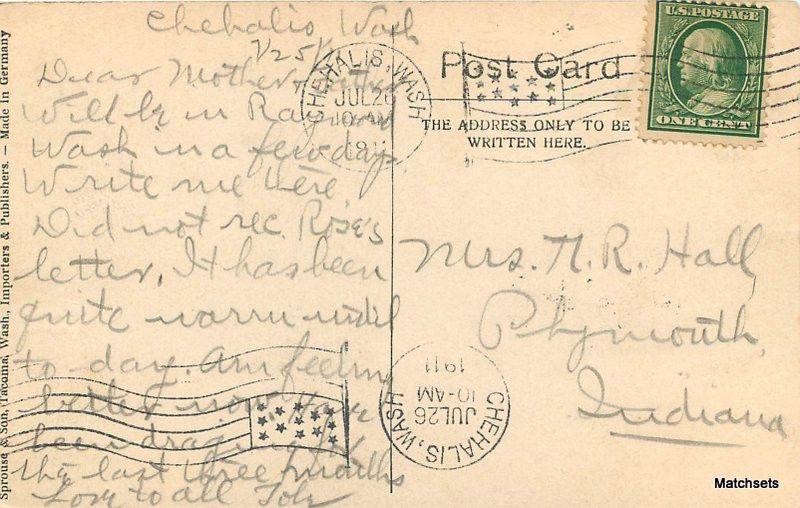 Chehalis Wash
7/25/11
Dear Mother
Will be in Raymond
Wash in a few days
Write me here.
Did not rec. Rose's
letter, It has been
quite warm until
to day. Am feeling
better now have
been draging
the last three months
Love to all
CHEHALIS, WASH
JUL 26
10-AM
1911
Post Card
THE ADDRESS ONLY TO BE
WRITTEN HERE.
U.S. POSTAGE
ONE CENT
Mrs. H. R. Hall,
Plymouth,
Indiana
CHEHALIS, WASH
JUL 26
10-AM
1911
Sprouse & Son, Tacoma, Wash., Importers & Publishers. — Made in Germany
Matchsets